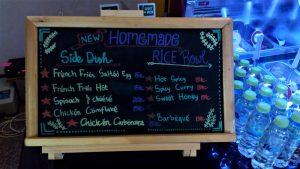 NEW Homemade
Side Dish
French Fries Salted Egg
French Fries Hot
Spinach & Cheese
Chicken Cornflake
Chicken Carbonara
RICE Bowl
Hot Spicy
Spicy Curry
Sweet Honey
Barbeque